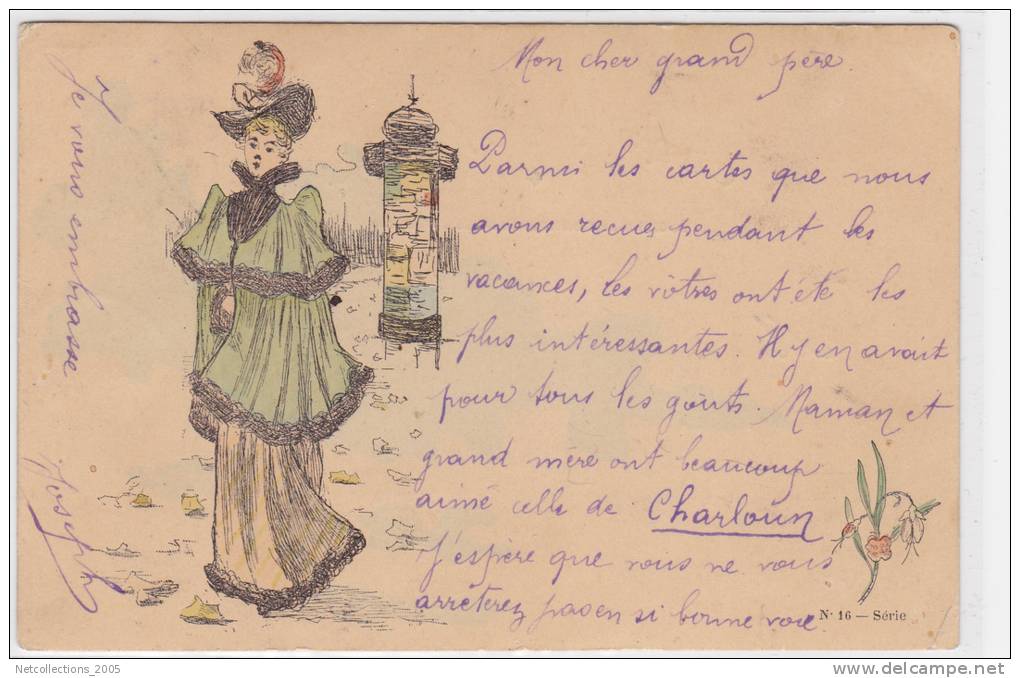 Mon cher grand père.
Parmi les cartes que nous
avons recues pendant les
vacances, les vôtres ont été les
plus intéressantes. Il y en avait
pour tous les goûts. Maman et
grand mère ont beaucoup
aimé celle de Charloun
J'espère que vous ne vous
arrêterez pas en si bonne voie.
Je vous embrasse
Joseph
N° 16 — Série
Netcollections_2005
delcampe.net